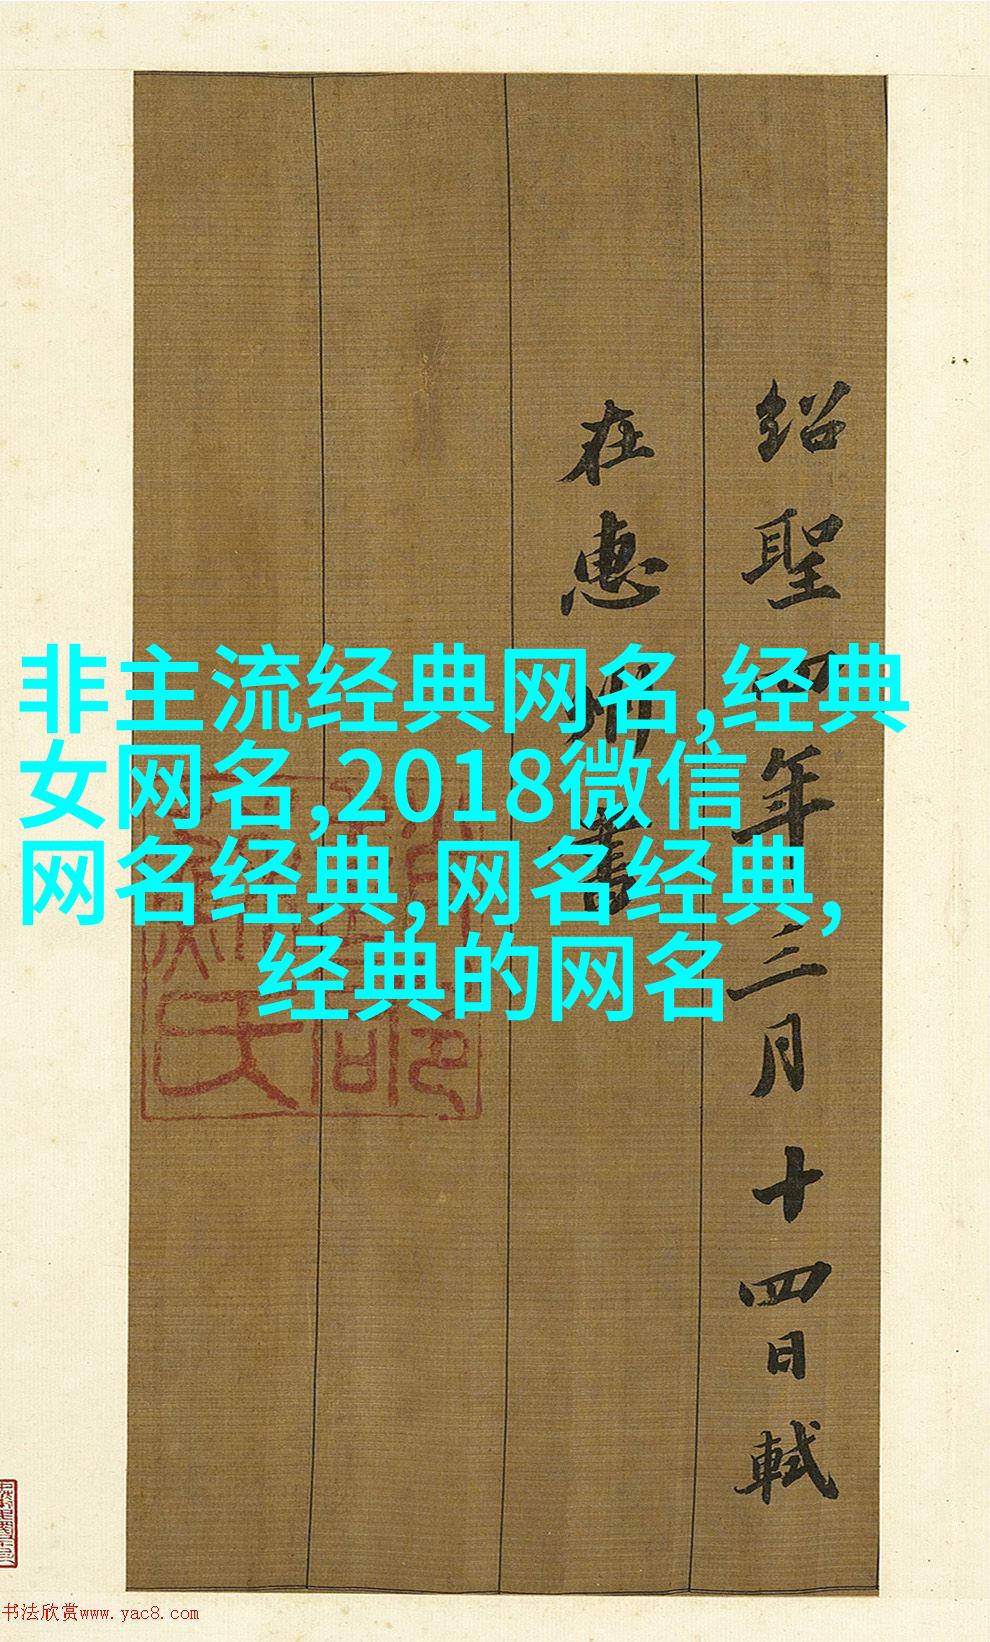 非主流经典网名,经典
女网名,2018微信
网名经典,网名经典,
经典的网名
紹聖四年三月十四日軾
在惠州書
书法欣赏www.yac8.com